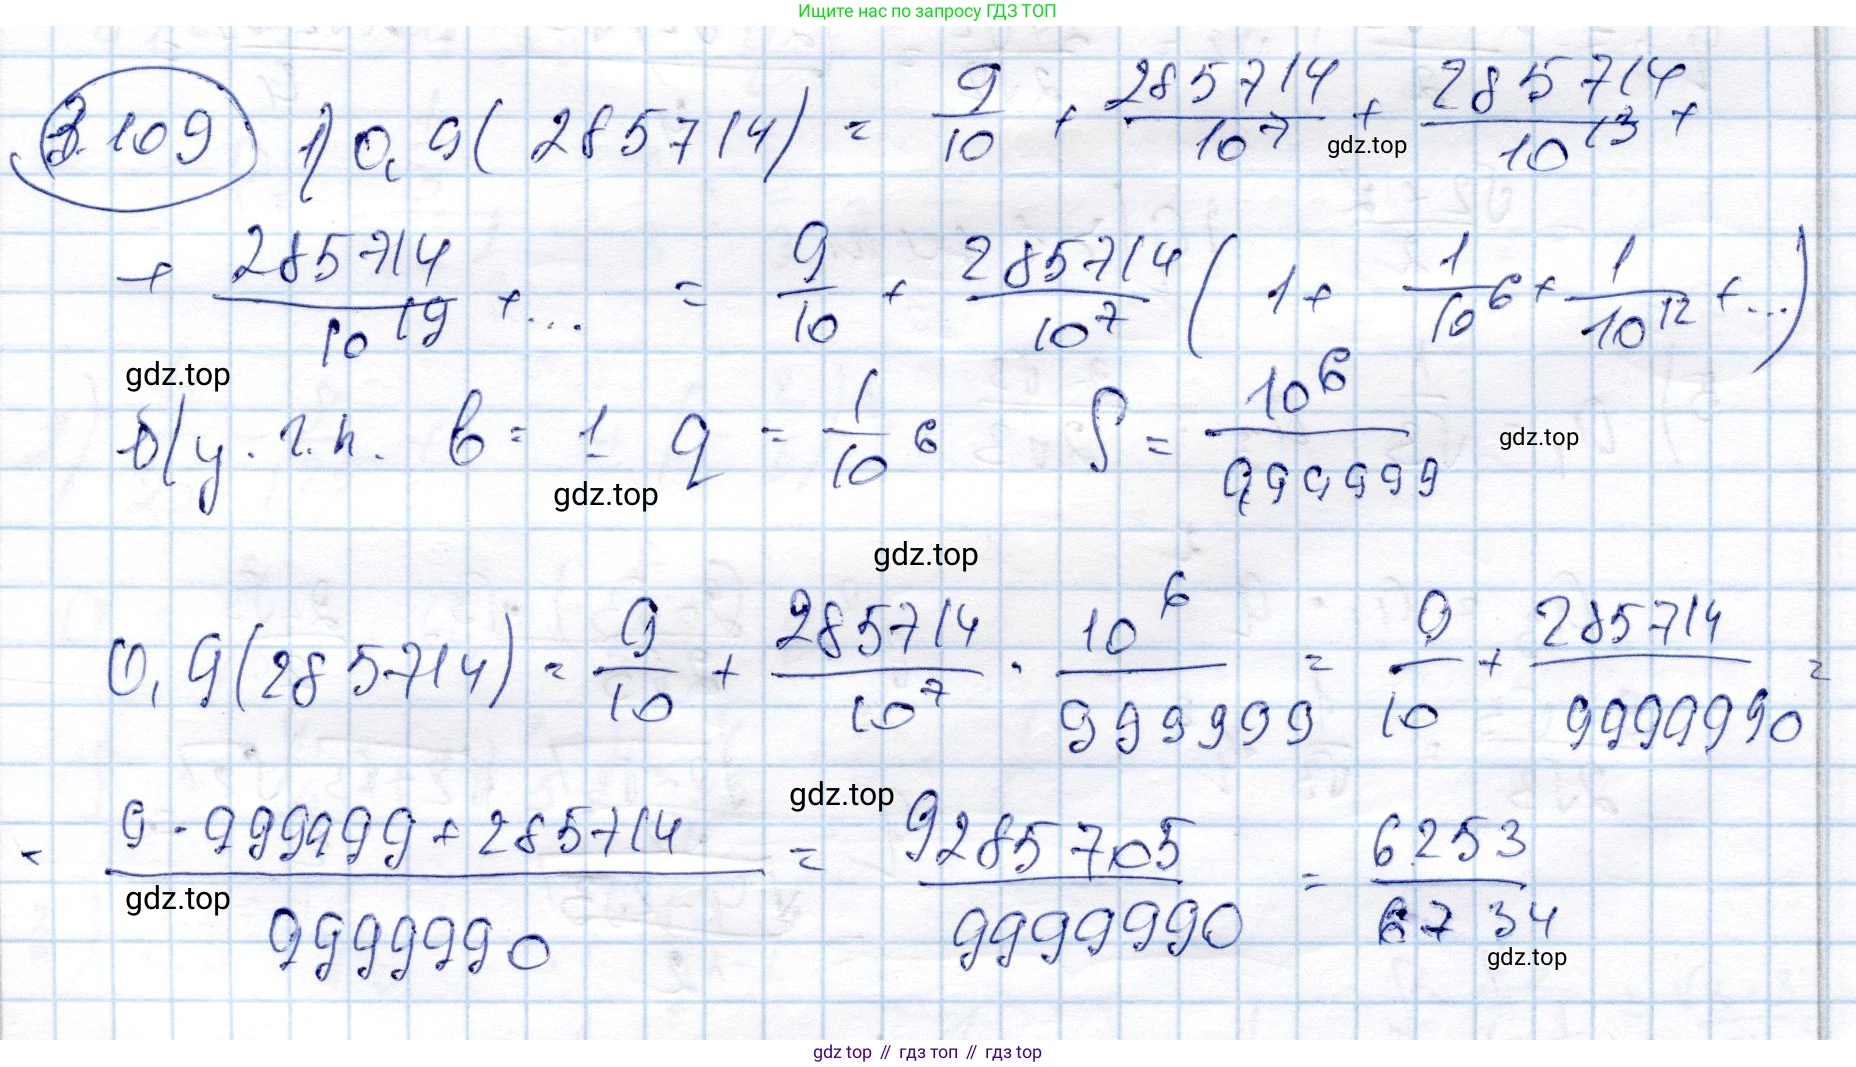 Ищите нас по запросу ГДЗ ТОП
3.109 1) 0,9(285714) = 9/10 + 285714/10^7 + 285714/10^13 +
gdz.top
+ 285714/10^19 + ... = 9/10 + 285714/10^7 (1 + 1/10^6 + 1/10^12 + ...)
gdz.top
б/у. г.п. b = 1 q = 1/10^6 S = 10^6/999999
gdz.top
gdz.top
gdz.top
0,9(285714) = 9/10 + 285714/10^7 · 10^6/999999 = 9/10 + 285714/9999990 =
gdz.top
= 9·999999+285714/9999990 = 9285705/9999990 = 6253/6734
gdz.top
gdz.top
gdz top // гдз топ // гдз top